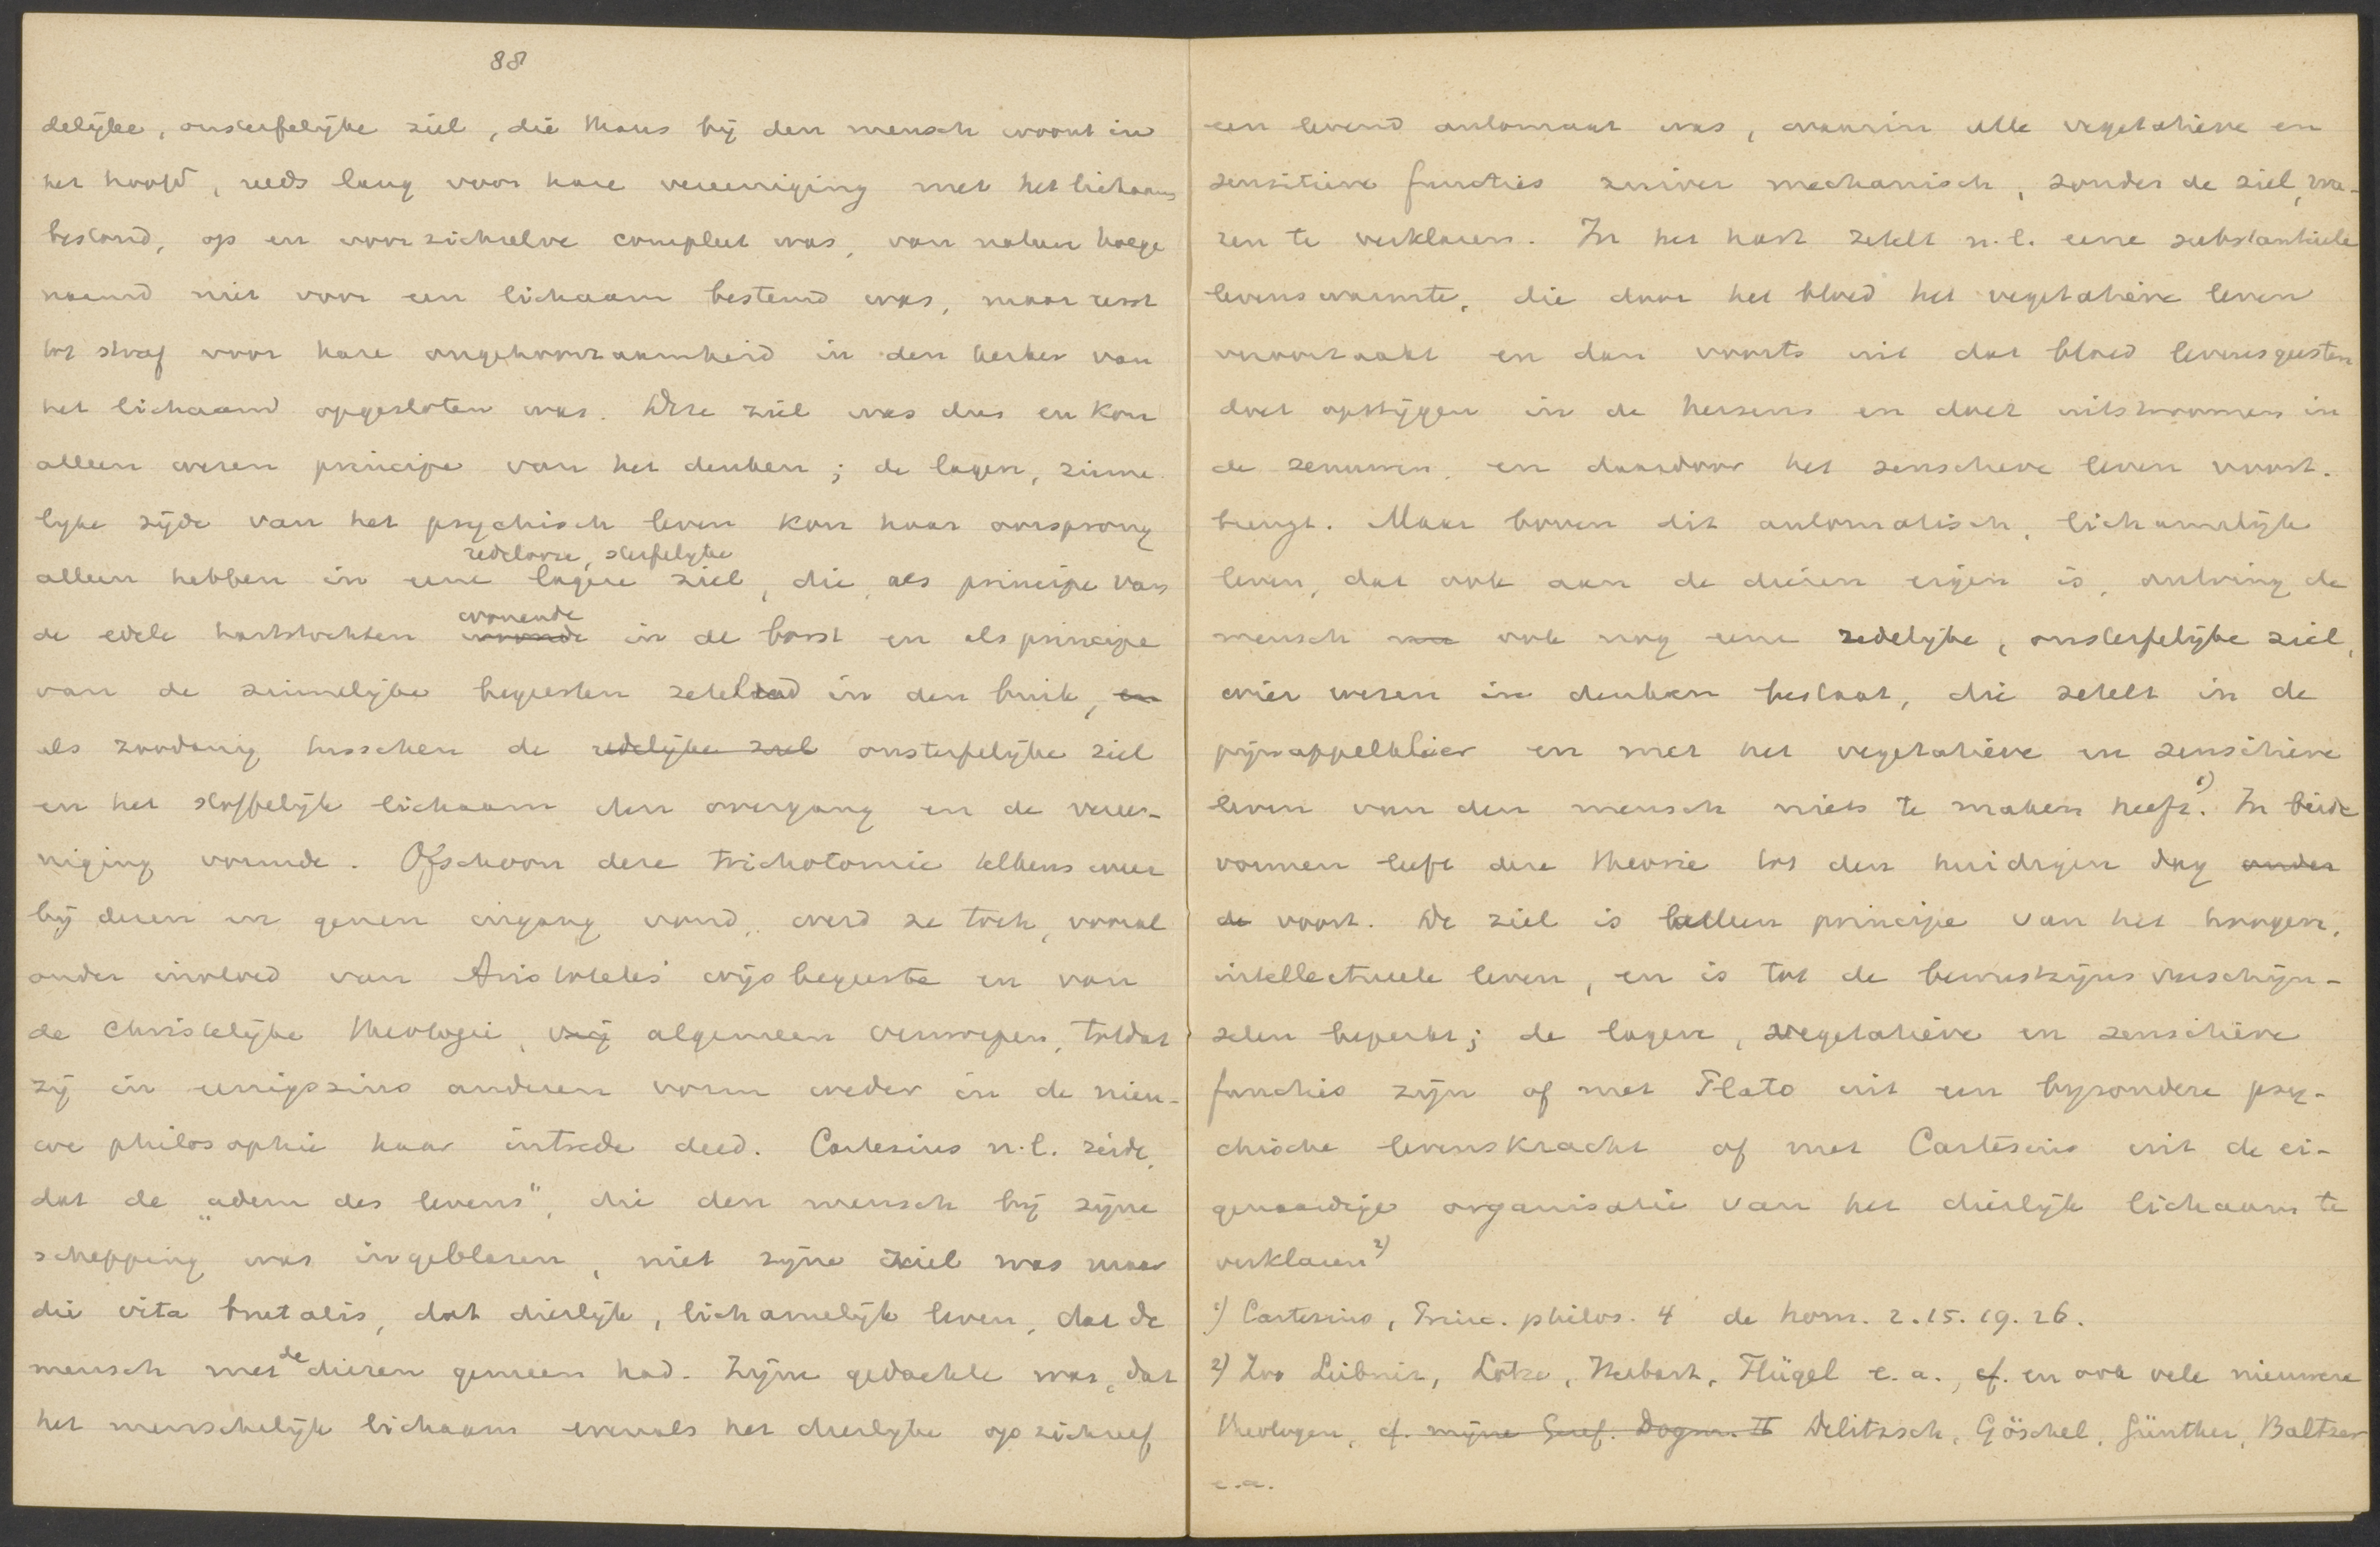 88
delijke, onsterfelijke ziel, die thans bij den mensch woont in
het hoofd, reeds lang voor hare vereeniging met het lichaam
bestond, op en voor zichzelve compleet was, van nature hoege
naamd niet voor een lichaam bestemd was, maar eerst
tot straf voor hare ongehoorzaamheid in den kerker van
het lichaam opgesloten was. Deze ziel was dus en kon
alleen wezen principe van het denken; de lagere, zinne
lijke zijde van het psychisch leven kon haar oorsprong
redelooze, sterfelijke
alleen hebben in eene lagere ziel, die, als principe van
wonende
de edele hartstochten woonde in de borst en als principe
van de zinnelijke begeerten zetelend in den buik, en
als zoodanig tusschen de redelijke ziel onsterfelijke ziel
en het stoffelijk lichaam den overgang en de veree-
niging vormde. Ofschoon deze trichotomie telkens weer
bij dezen en genen ingang vond, werd ze toch, vooral
onder invloed van Aristoteles' wijsbegeerte en van
de Christelijke theologie, vrij algemeen verworpen, totdat
zij in eenigszins anderen vorm weder in de nieu-
we philosophie haar intrede deed. Cartesius n.l. zeide,
dat de „adem des levens", die den mensch bij zijne
schepping was ingeblazen, niet zijne ziel was maar
die vita brutalis, dat dierlijk, lichamelijk leven, dat de
mensch met de dieren gemeen had. Zijne gedachte was, dat
het menschelijk lichaam evenals het dierlijke op zichzelf
een levend automaat was, waarin alle vegetatieve en
sensitieve functies zuiver mechanisch, zonder de ziel, wa-
ren te verklaren. In het hart zetelt n.l. eene substantieele
levenswarmte, die door het bloed het vegetatieve leven
veroorzaakt en dan voorts uit dat bloed levensgeesten
doet opstijgen in de hersens en doet uitstroomen in
de zenuwen, en daardoor het sensitieve leven voort-
brengt. Maar boven dit automatisch, lichamelijk
leven, dat ook aan de dieren eigen is, ontving de
mensch nu ook nog eene redelijke, onsterfelijke ziel,
wier wezen in denken bestaat, die zetelt in de
pijnappelklier en met het vegetatieve en sensitieve
leven van den mensch niets te maken heeft.¹) In beide
vormen leeft deze theorie tot den huidigen dag onder
de voort. De ziel is alleen principe van het hoogere,
intellectueele leven, en is tot de bewustzijnsverschijn-
selen beperkt; de lagere, vegetatieve en sensitieve
functies zijn of met Plato uit een bijzondere psy-
chische levenskracht of met Cartesius uit de ei-
genaardige organisatie van het dierlijk lichaam te
verklaren²)
¹) Cartesius, Princ. philos. 4 de hom. 2. 15. 19. 26.
²) Zoo Leibniz, Lotze, Herbart, Flügel e.a., cf. en ook vele nieuwere
theologen, cf. mijne Geref. Dogm. II Delitzsch, Göschel, Günther, Baltzer
e.a.